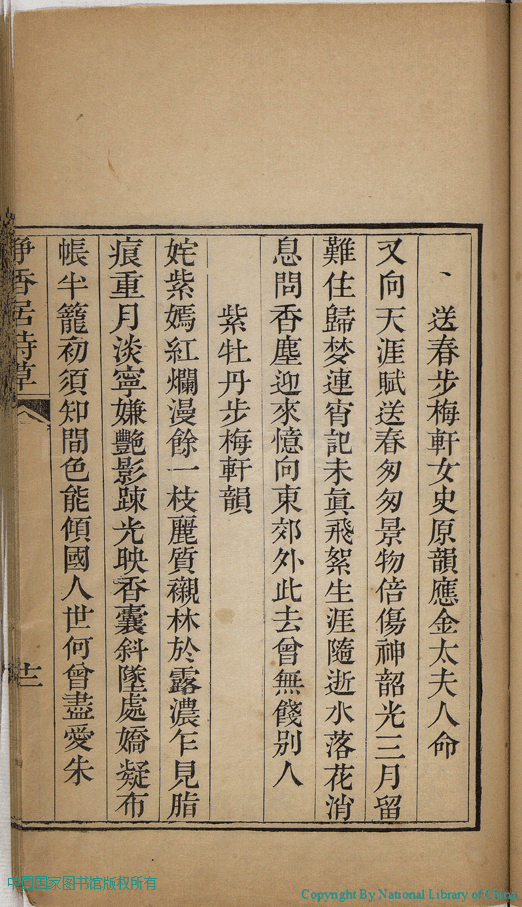 送春步梅軒女史原韻應金太夫人命
又向天涯賦送春匆匆景物倍傷神韶光三月留
難住歸梦連宵記未眞飛絮生涯隨逝水落花消
息問香塵迎來憶向東郊外此去曾無餞别人
紫牡丹步梅軒韻
姹紫嫣紅爛漫餘一枝麗質襯林於露濃乍見脂
痕重月淡寧嫌艷影踈光映香囊斜墜處嬌凝布
帳半籠初須知間色能傾國人世何曾盡愛朱
淨香居詩草
十二
中国国家图书馆版权所有
Copyright By National Library of China